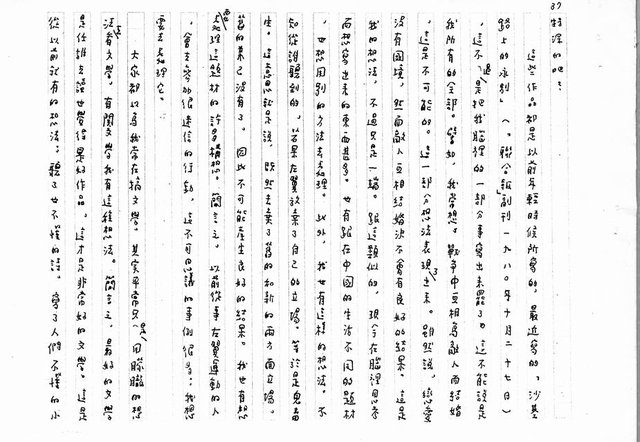 37
特深的吧？
這些作品都是以前年輕時候所寫的。最近寫的，沙基
路上的永別」（「聯合報」副刊一九八〇年十月二十七日）
這不過是把我腦裡的一部分事寫出來罷了。這不能說是
我所有的全部。譬如，我常想。戰爭中互相為敵人而結婚
，這是不可能的。這一部分想法表現了出來。雖然說，戀愛
沒有國境，然而敵人互相結婚決不會有良好的結果。這是
我的想法，不過只是一端。跟這類似的，現今在腦裡思考
而想寫出來的東西甚多。也有跟在中國的生活不同的題材
，也想用別的方法去處理。此外，我也有這樣的想法。不
知從誰聽到的，如果左翼放棄了自己的立場。等於是鬼畜
生。這意思就是說，既然丟棄了舊的和新的兩方面立場。
舊的東西沒有了。因此不可能產生良好的結果。我也有想
要處理這題材的許多構想。簡言之，以前從事左翼運動的人
，會去參加很迷信的行動，這不可思議的事例很多；我想
要去處理它。
大家都以為我常在搞文學。其實平常只是用朦朧的想
法看文學。有關文學我有這種想法。簡言之，最好的文學
是任誰去讀也覺得是好作品。這才是非常好的文學。這是
從以前就有的想法。聽了也不懂的話。寫了人們不懂的小